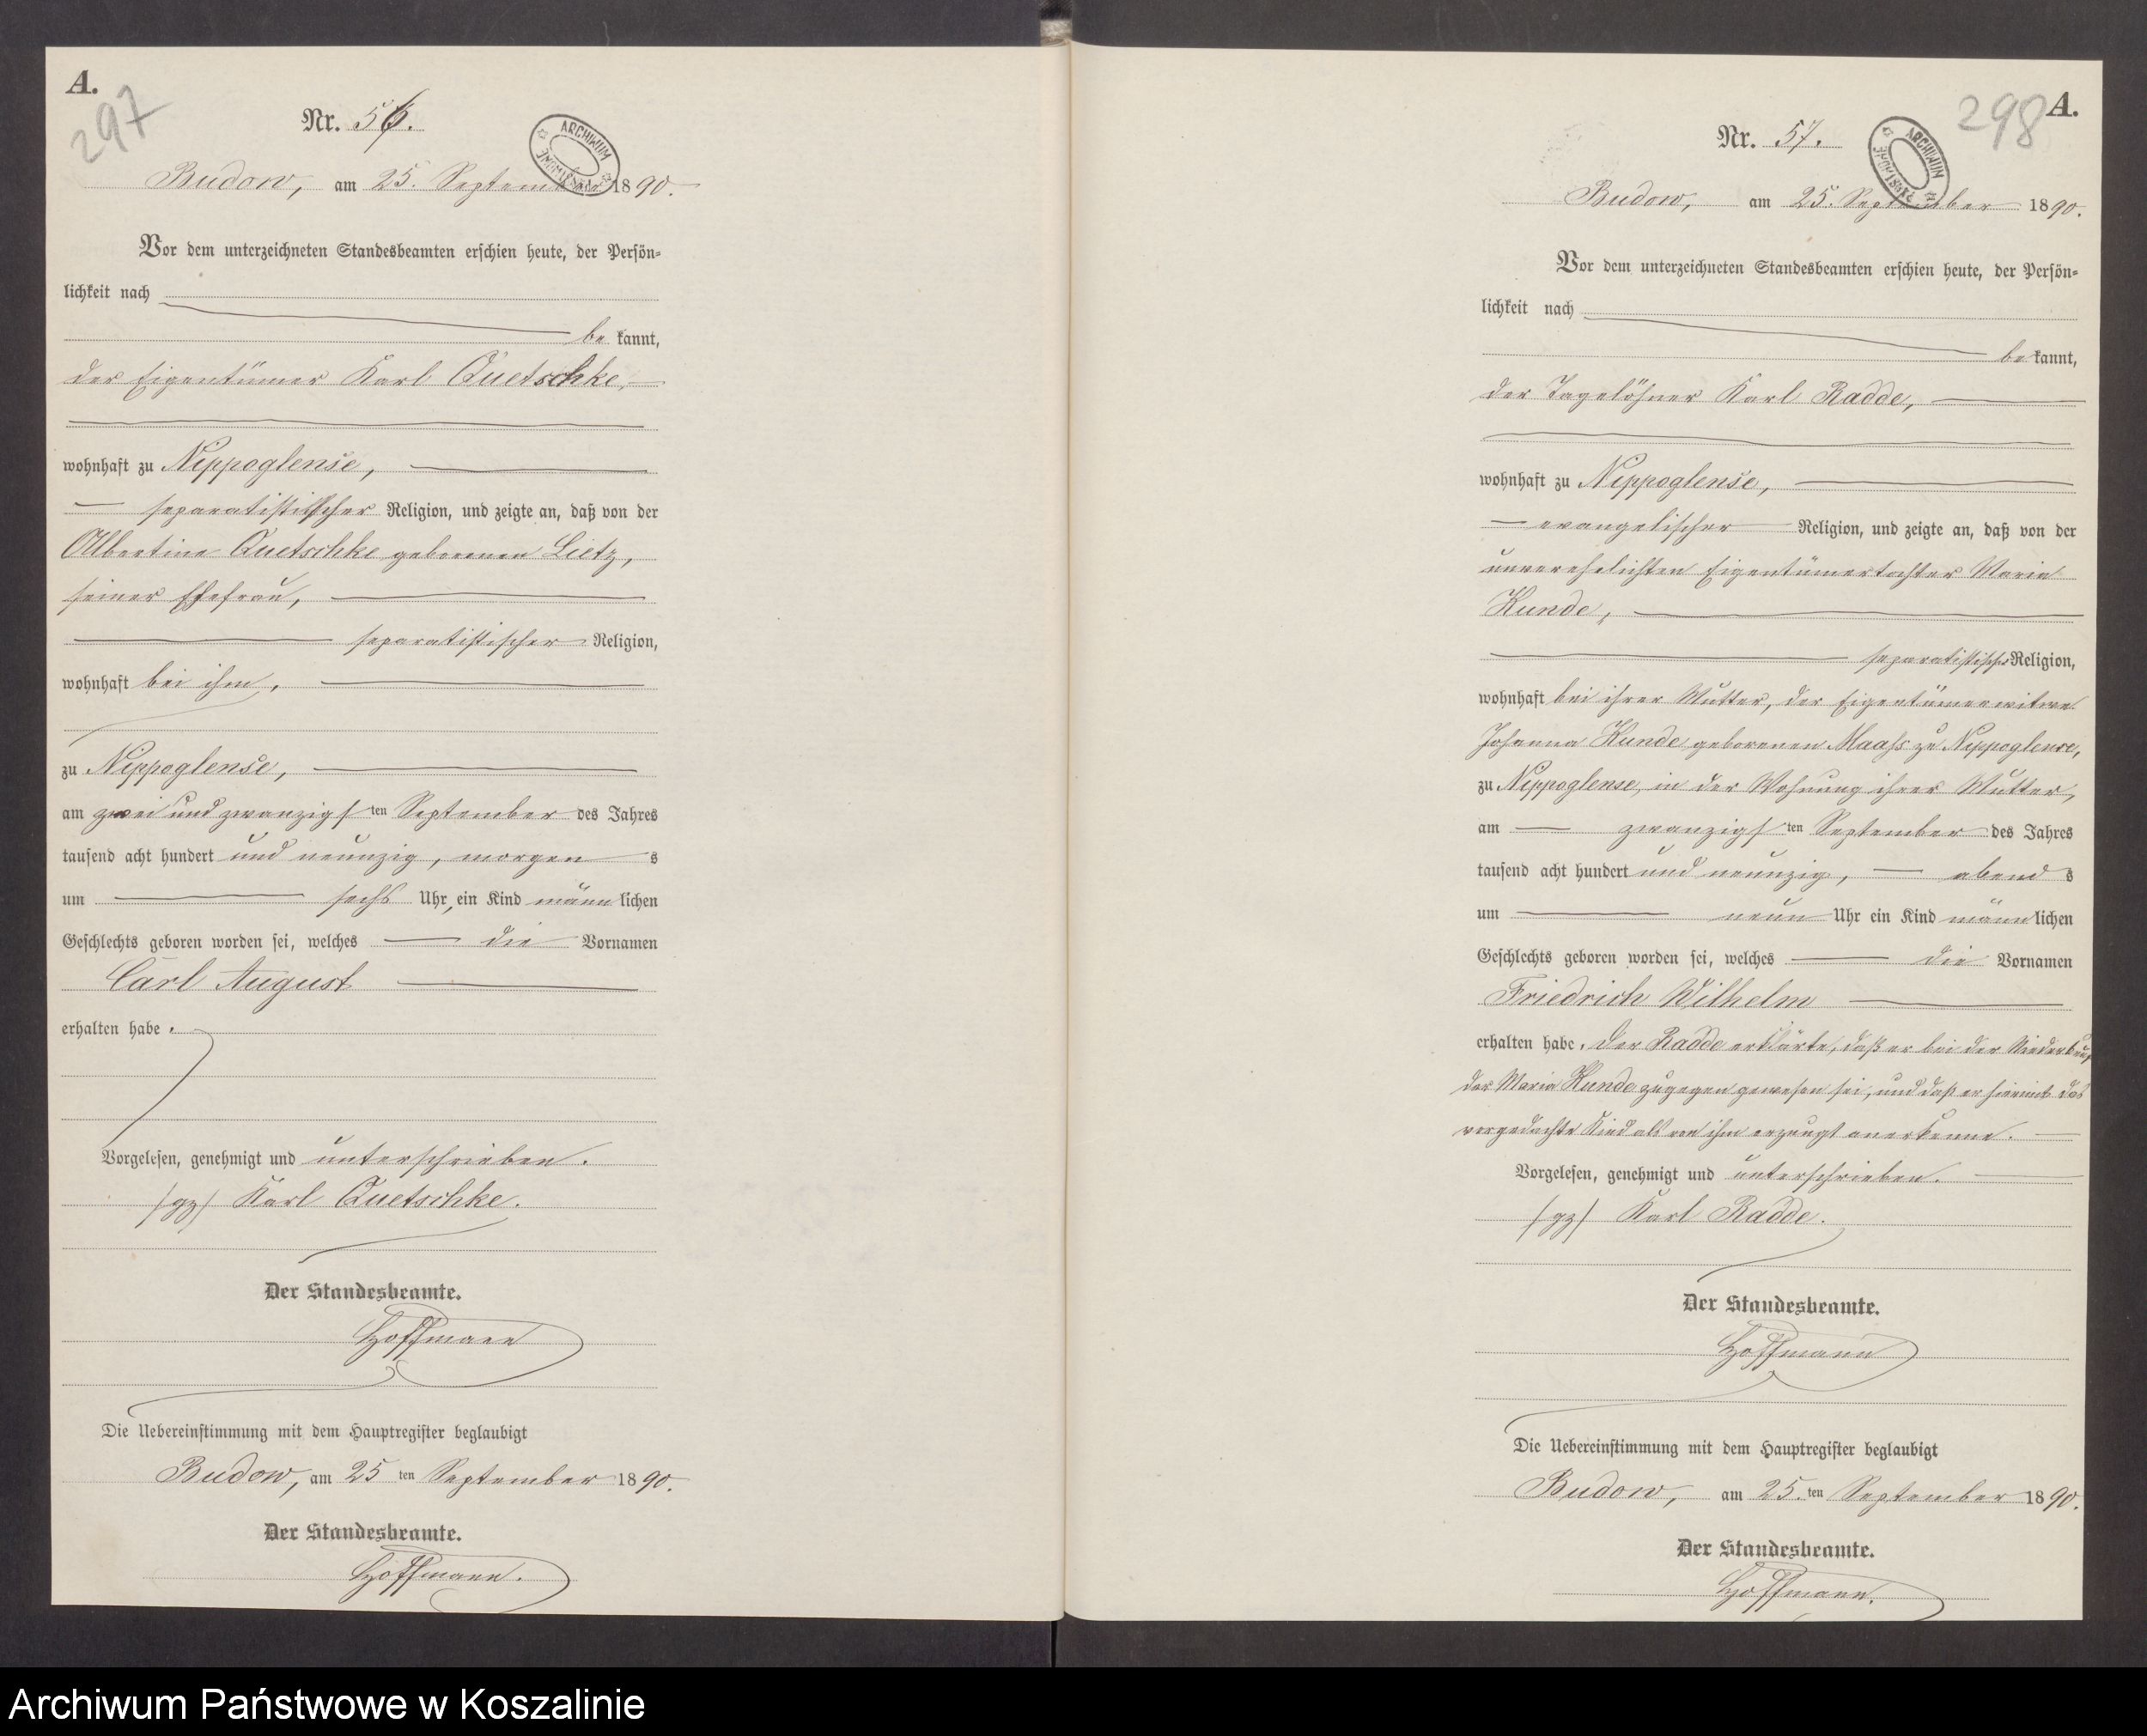 A.
297
Nr. 56.
ARCHIWUM
Budow, am 25. September 1890.
Vor dem unterzeichneten Standesbeamten erschien heute, der Persön-
lichkeit nach
be kannt,
der Eigentümer Karl Quetschke,
wohnhaft zu Nippoglense,
separatistischer Religion, und zeigte an, daß von der
Albertine Quetschke geborenen Lietz,
seiner Ehefrau,
separatistischer Religion,
wohnhaft bei ihm,
zu Nippoglense,
am zwei und zwanzigsten September des Jahres
tausend acht hundert und neunzig, morgens
um sechs Uhr, ein Kind männlichen
Geschlechts geboren worden sei, welches die Vornamen
Carl August
erhalten habe.
Vorgelesen, genehmigt und unterschrieben.
/gz/ Karl Quetschke.
Der Standesbeamte.
Hoffmann
Die Uebereinstimmung mit dem Hauptregister beglaubigt
Budow, am 25 ten September 1890.
Der Standesbeamte.
Hoffmann.
298
A.
Nr. 57.
ARCHIWUM
Budow, am 25. September 1890.
Vor dem unterzeichneten Standesbeamten erschien heute, der Persön-
lichkeit nach
be kannt,
der Tagelöhner Karl Radde,
wohnhaft zu Nippoglense,
evangelischer Religion, und zeigte an, daß von der
unverehelichten Eigentümertochter Maria
Kunde,
separatistischer Religion,
wohnhaft bei ihrer Mutter, der Eigentümerwitwe
Johanna Kunde geborenen Maaß zu Nippoglense,
zu Nippoglense, in der Wohnung ihrer Mutter,
am zwanzigsten September des Jahres
tausend acht hundert und neunzig, abends
um neun Uhr ein Kind männlichen
Geschlechts geboren worden sei, welches die Vornamen
Friedrich Wilhelm
erhalten habe. Der Radde erklärte, daß er bei der Niederkunft
der Maria Kunde zugegen gewesen sei, und daß er hiermit das
vorgedachte Kind als von ihm erzeugt anerkenne.
Vorgelesen, genehmigt und unterschrieben.
/gz/ Karl Radde.
Der Standesbeamte.
Hoffmann
Die Uebereinstimmung mit dem Hauptregister beglaubigt
Budow, am 25. ten September 1890.
Der Standesbeamte.
Hoffmann.
Archiwum Państwowe w Koszalinie